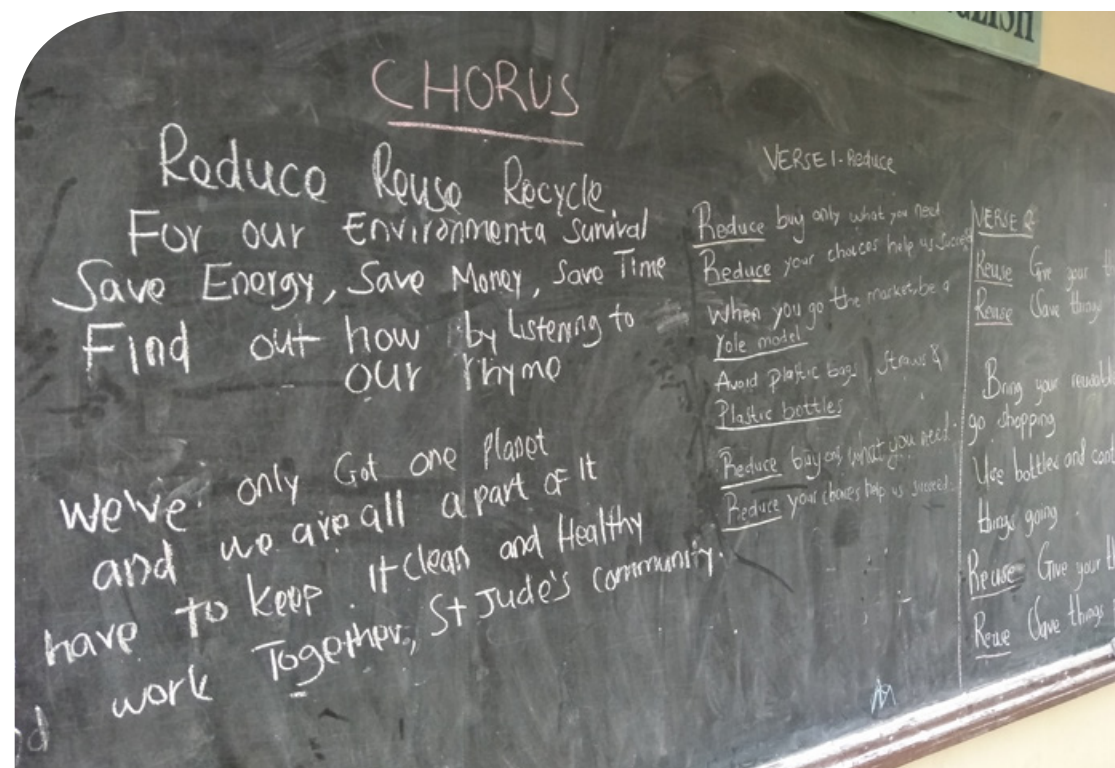 CHORUS
Reduce Reuse Recycle
For our Environmenta Surival
Save Energy, Save Money, Save Time
Find out how by Listening to
our rhyme
we've only Got one Planet
and we are all a part of It
have to keep it clean and Healthy
work Together, St Jude's community.
VERSE 1 - Reduce
Reduce buy only what you need
Reduce your choices help us succeed
When you go the market, be a
role model
Avoid plastic bags, Straws &
Plastic bottles
Reduce buy only what you need.
Reduce your choices help us succeed.
VERSE 2
Reuse Give your
Reuse Save things
Bring your
go shopping
Use bottles and
things going.
Reuse Give your
Reuse Save things